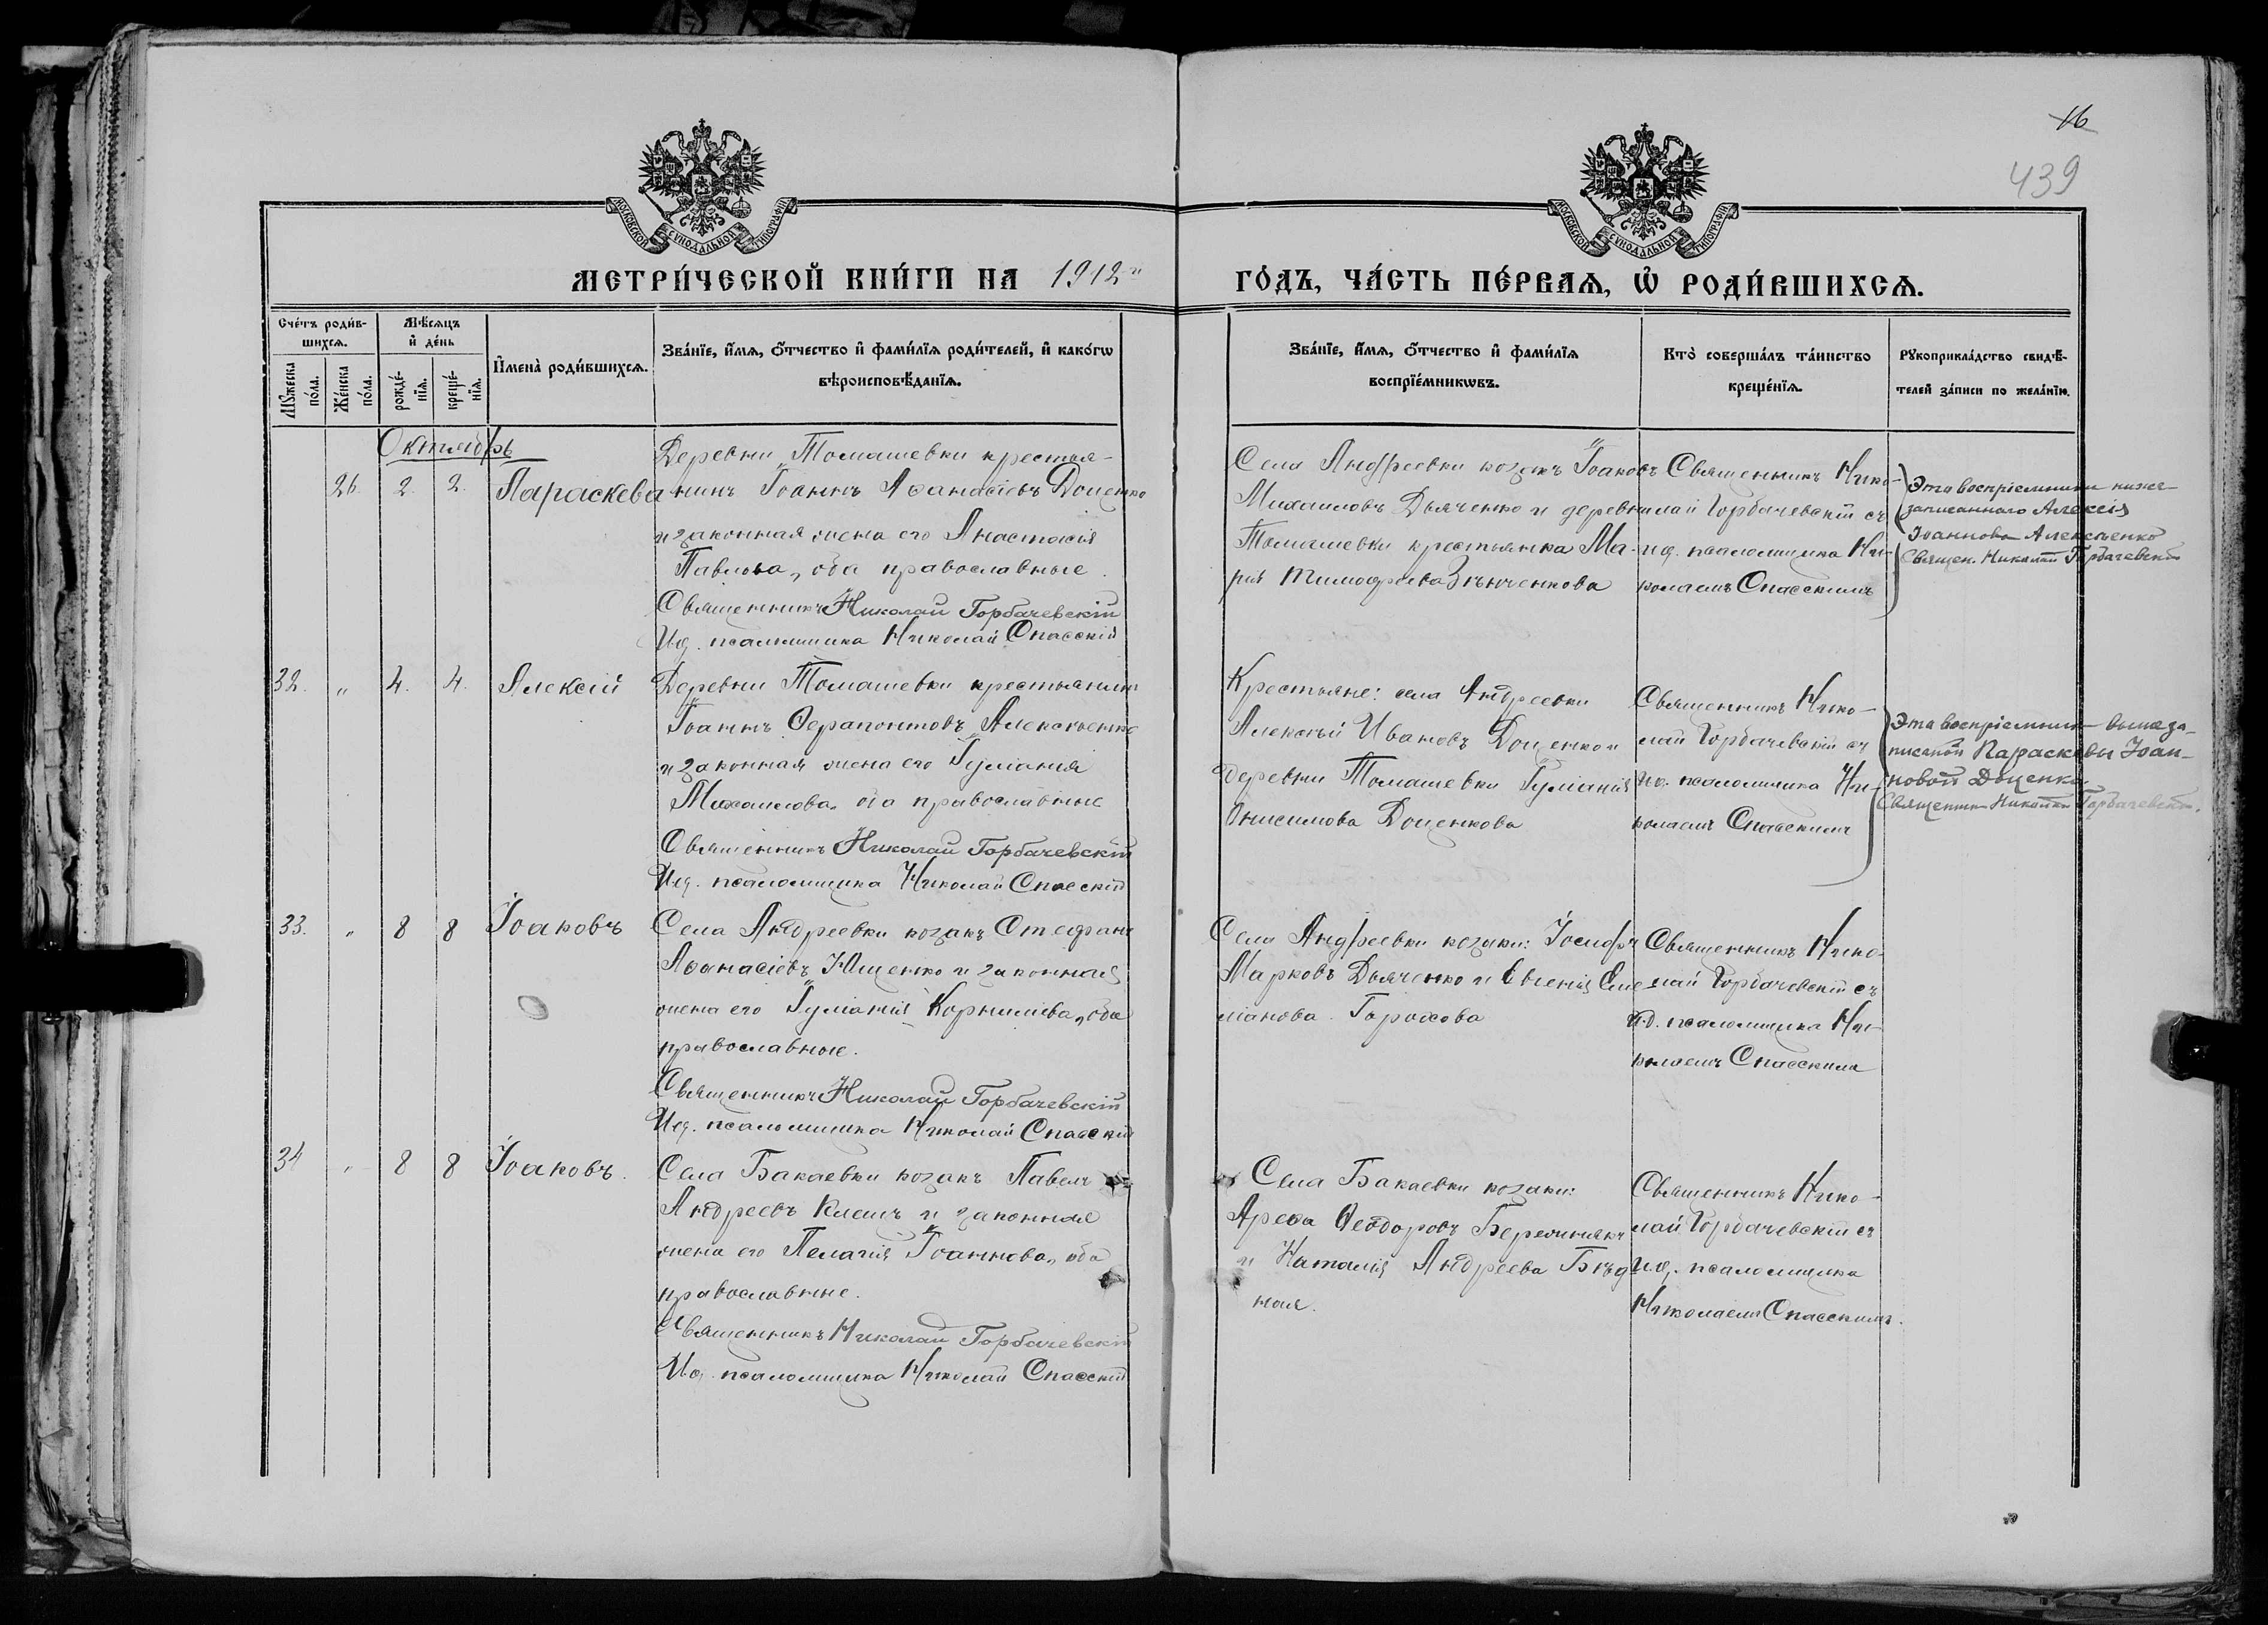 16
439
МОСКОВСКОЙ СѴНОДАЛЬНОЙ ТИПОГРАФІИ
МОСКОВСКОЙ СѴНОДАЛЬНОЙ ТИПОГРАФІИ
МЕТРИ́ЧЕСКОЙ КНИ́ГИ НА 1912 й
ГО́ДЪ, ЧА́СТЬ ПЕ́РВАѦ, Ѽ РОДИ́ВШИХСѦ.
Сче́тъ роди́в-
шихсѧ.
Мꙋ́жеска по́ла.
Же́нска по́ла.
Мѣ́сѧцъ
и҆ де́нь
рожде́-
нїѧ.
креще́-
нїѧ.
И҆мена̀ роди́вшихсѧ.
Зва́нїе, и҆́мѧ, ѻ҆́тчество и҆ фами́лїѧ роди́телей, и҆ како́гѡ
вѣроисповѣ́данїѧ.
Зва́нїе, и҆́мѧ, ѻ҆́тчество и҆ фами́лїѧ
воспрїе́мникѡвъ.
Кто̀ соверша́лъ та́инство
креще́нїѧ.
Рꙋкоприкла́дство свидѣ́-
телей за́писи по жела́нїю.
Октябрь
26. 2. 2. Параскева
Деревни Томашевки крестья-
нинъ Іоаннъ Аѳанасіевъ Доценко
и законная жена его Анастасія
Павлова, оба православные.
Священникъ Николай Горбачевскій
И.д. псаломщика Николай Спасскій
Села Андреевки козакъ Іоаковъ
Михаиловъ Дьяченко и деревни
Томашевки крестьянка Ма-
рія Тимофеева Зѣнченкова
Священникъ Нико-
лай Горбачевскій съ
и.д. псаломщика Ни-
колаемъ Спасскимъ
Эта воспріемники ниже
записаннаго Алексія
Іоаннова Алексѣенко
Священ. Николай Горбачевскій
32. " 4. 4. Алексій
Деревни Томашевки крестьянинъ
Іоаннъ Ѳерапонтовъ Алексѣенко
и законная жена его Іуліанія
Михаилова, оба православные
Священникъ Николай Горбачевскій
И.д. псаломщика Николай Спасскій
Крестьяне: села Андреевки
Алексѣй Ивановъ Доценко и
деревни Томашевки Іуліанія
Онисимова Доценкова
Священникъ Нико-
лай Горбачевскій съ
и.д. псаломщика Ни-
колаемъ Спасскимъ
Эта воспріемники вышеза-
писанной Параскевы Іоан-
новой Доценко
Священникъ Николай Горбачевскій.
33. " 8 8 Іоаковъ
Села Андреевки козакъ Стефанъ
Аѳанасіевъ Ющенко и законная
жена его Іуліанія Корниліева, оба
православные.
Священникъ Николай Горбачевскій
И.д. псаломщика Николай Спасскій
Села Андреевки козаки: Іосифъ
Марковъ Дьяченко и Евгенія Еме
ліанова Горохова
Священникъ Нико-
лай Горбачевскій съ
и.д. псаломщика Ни-
колаемъ Спасскимъ
34 " 8 8 Іоаковъ.
Села Бакаевки козакъ Павелъ
Андреевъ Клешъ и законная
жена его Пелагія Іоаннова, оба
православные.
Священникъ Николай Горбачевскій
И.д. псаломщика Николай Спасскій
Села Бакаевки козаки:
Арефа Ѳеодоровъ Бережнякъ
и Наталія Андреева Бѣд
ная.
Священникъ Нико-
лай Горбачевскій съ
и.д. псаломщика
Николаемъ Спасскимъ.